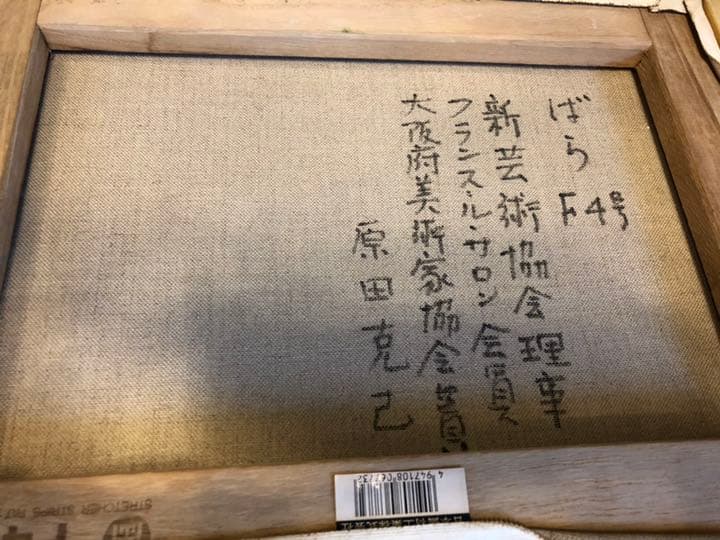 ばら F4号
新芸術協会理事
フランス・ル・サロン会員
大阪府美術家協会員
原田克己
STRETCHER STRIPS